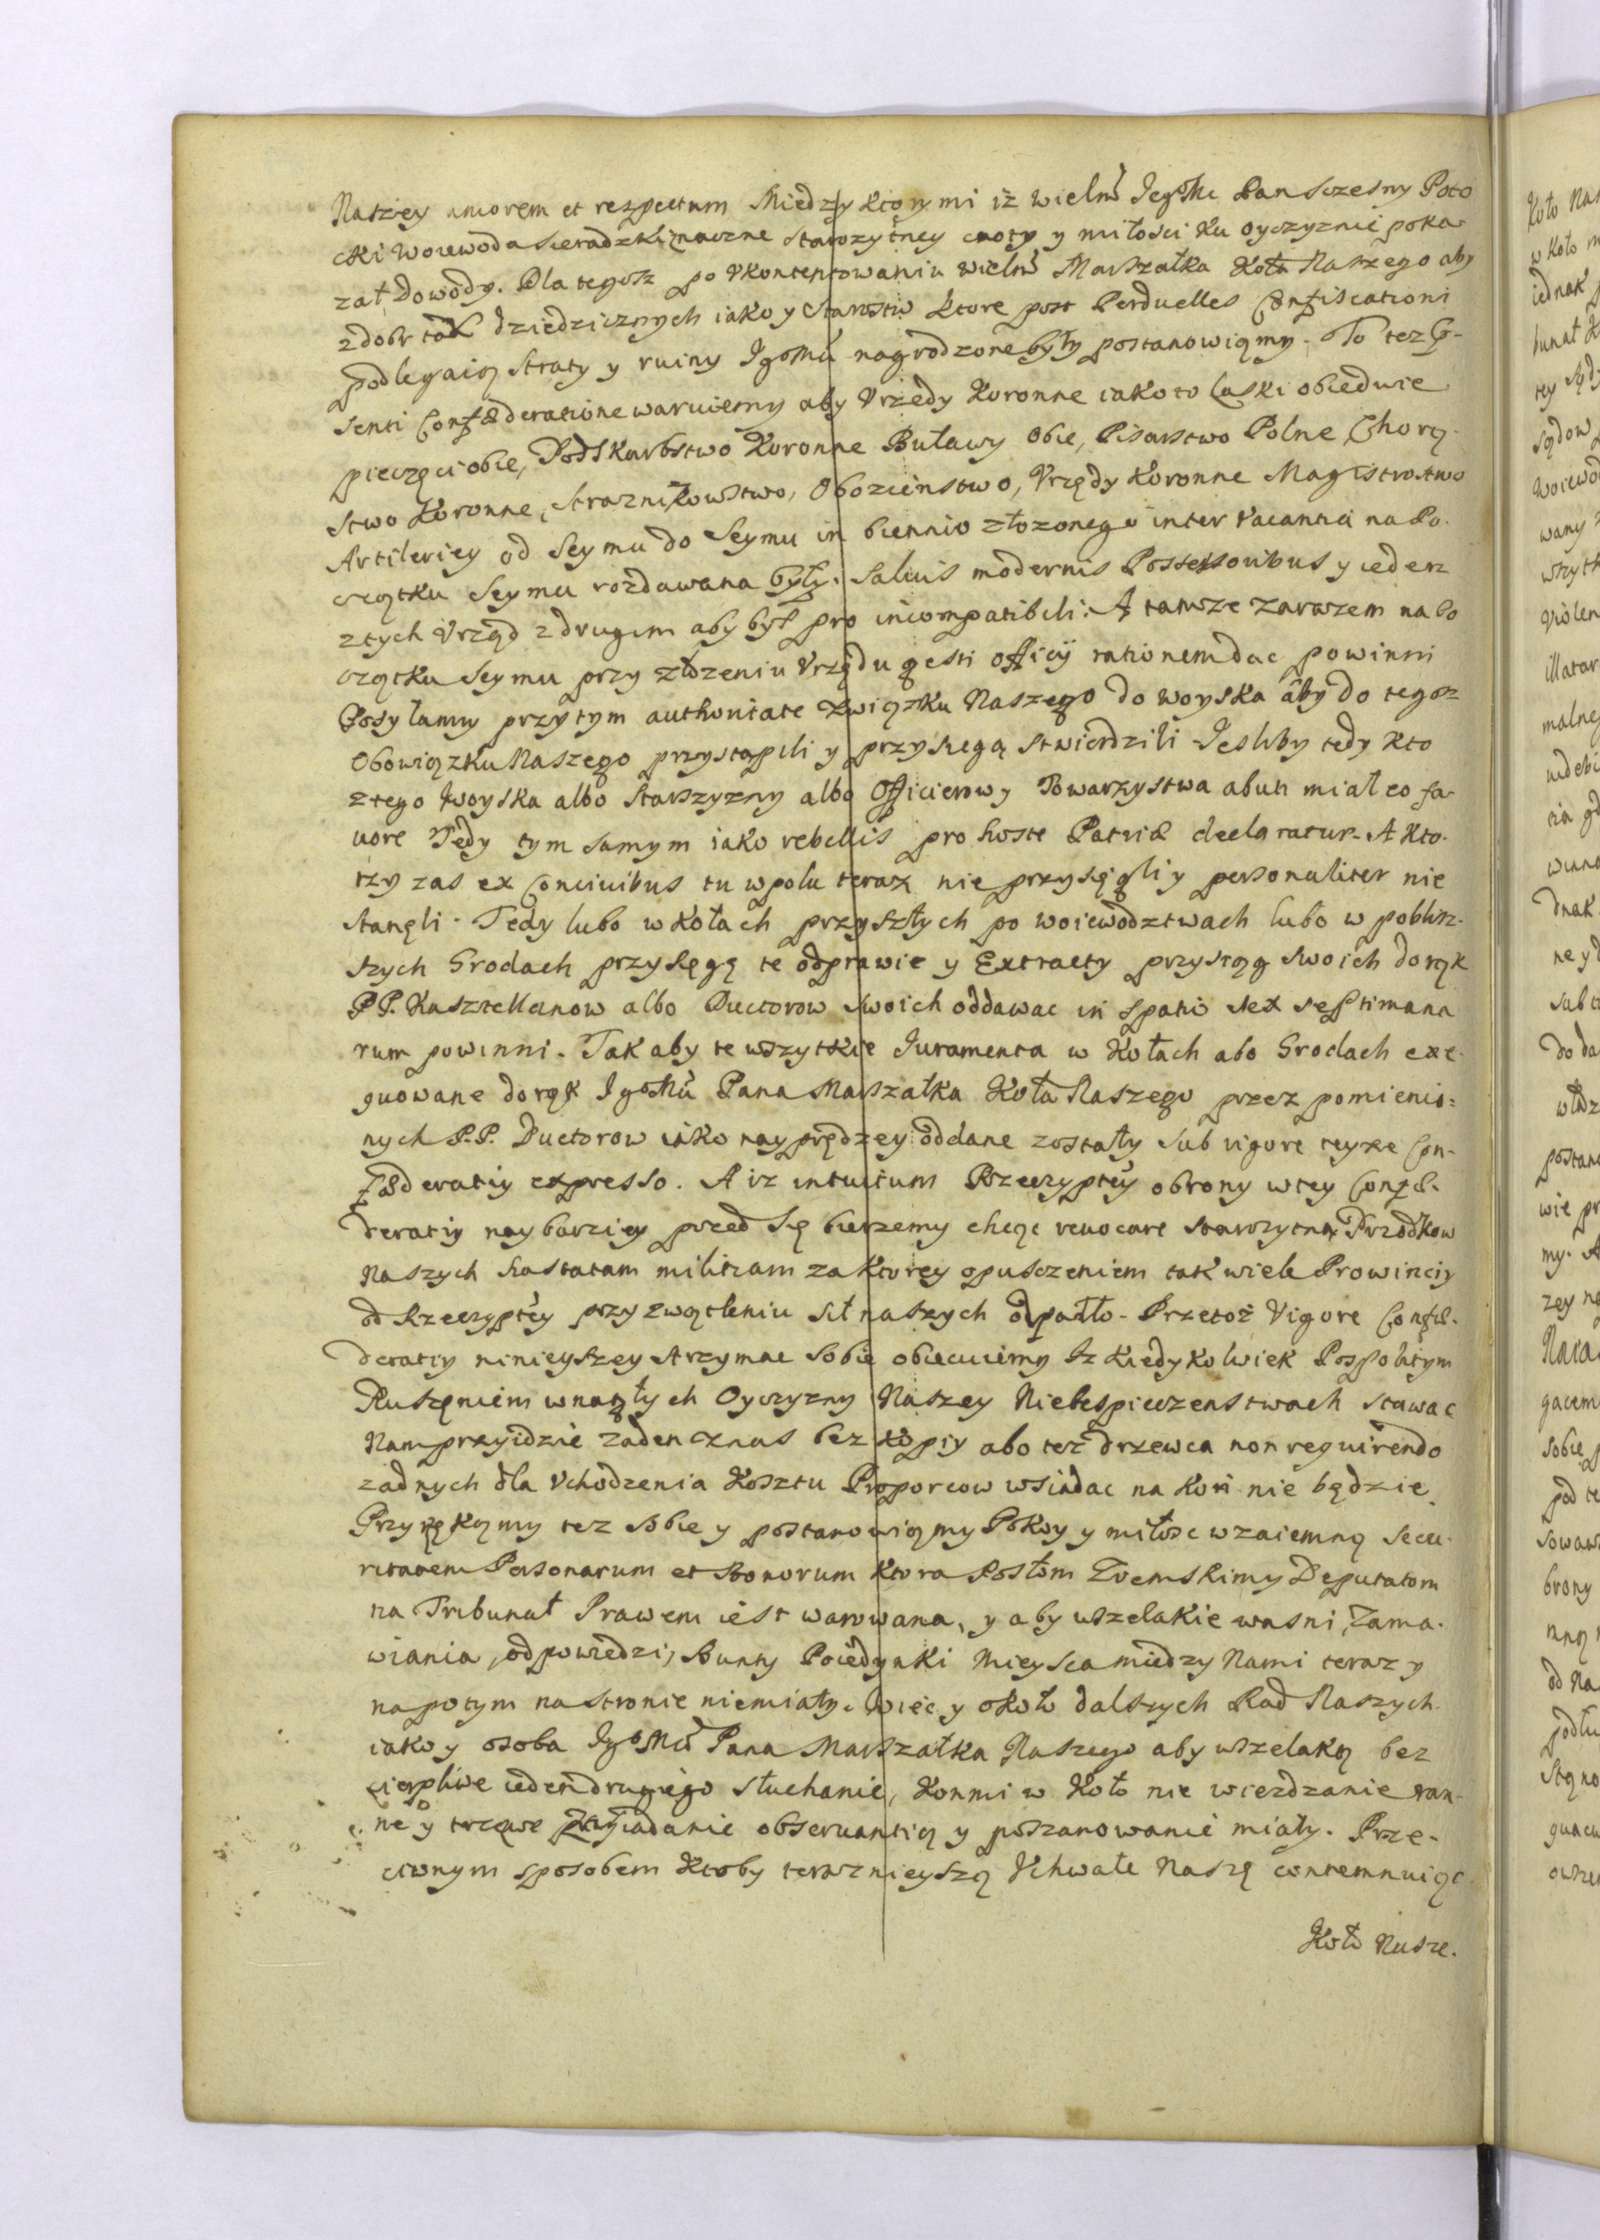 Naszey amorem et respectum Miedzy ktorymi iż wielm̃ Jegm̃c Pan Sczesny Poto
cki Woiewoda Sieradzki znaczne starozytney cnoty y miłosci ku oyczyznie poka
zał Dowody. Dla tegosz po vkontentowaniu wielm̃ Marszałka Koła Naszego aby
z dobr tak dziedzicznych iako y Starostw ktore post Perduelles Confiscationi
podlegaią straty y ruiny Jgomći nagrodzone były postanowiąmy. To tez
senti Confæderatione waruiemy aby Vrzedy Koronne iako to Laski obiedwie
pieczęci obie, Podskarbstwo Koronne Buławy Obie, Pisarstwo Polne, Chorą-
stwo Koronne, Straznikowstwo, Obozienstwo, Vrzędy Koronne Magistrostwo
Artileriey od Seymu do Seymu in biennio złozonego inter vacantia na Po-
czątku Seymu rozdawana były. Salvis modernis Possessoribus y ieden
z tych Vrząd z drugim aby był pro incompatibili. A tamze zarazem na Po
czątku Seymu przy złozeniu Vrzędu gesti officij rationem dac powinni
Posyłamy przytym authoritate Związku Naszego do woyska aby do tegosz
Obowiązku Naszego przystąpili y przysięgą stwierdzili Jesliby tedy kto
z tego Woyska albo Starszyzny albo Officierow y Towarzystwa abuti miał eo fa-
uore Tedy tym samym iako rebellis pro hoste Patriæ declaratur. A kto-
rzy zas ex Conciuibus tu w polu teraz nie przysięgli y personaliter nie
stanęli. Tedy lubo w Kołach przyszłych po woiewodztwach lubo w poblisz-
szych Grodach przysięgę te odprawic y Extracty przysiąg swoich do rąk
PP. Kasztellanow albo Ductorow swoich oddawac in spatio sex septimana
rum powinni. Tak aby te wszytkie Juramenta w Kołach abo Grodach exe-
quowane do rąk Jgomći Pana Marszałka Koła Naszego przez pomienio-
nych P.P. Ductorow iako nayprędzey oddane zostały sub vigore teyże Con-
fæderatiy expresso. A iz intuitum Rzeczyptey obrony w tey Confæ-
deratiy naybarziey przed się bierzemy chcąc reuocare starozytną Przodkow
Naszych hastatam militiam za ktorey opusczeniem tak wiele Prowinciy
od Rzeczyptey przy zwątleniu sił naszych odpadło. Przetoż Vigore Confæ-
deratiy ninieyszey strzymac sobie obiecuiemy Iz kiedykolwiek Pospolitym
Ruszeniem w nagłych Oyczyzny Naszey Niebespieczenstwach stawac
Nam przyidzie zaden z nas bez kopiy abo tez drzewca non requirendo
zadnych dla vchodzenia kosztu Proporcow wsiadac na kon nie będzie.
Przyrzekąmy tez sobie y postanowiąmy Pokoy y miłosc wzaiemną secu-
ritatem Personarum et Bonorum ktora Posłom Ziemskim y Deputatom
na Tribunał Prawem iest warowana, y aby wszelakie wasni, Zama-
wiania, odpowiedzi, Bunty Poiedynki mieysca miedzy Nami teraz y
napotym na stronie niemiały. Więc y około dalszych Rad Naszych
iako y osoba Jgo Mći Pana Marszałka Naszego aby wszelaką bez
cierpliwe ieden drugiego słuchanie, Konmi w Koło nie wiezdzanie ran-
ne y trzezwe zasiadanie obseruantią y poszanowanie miały. Prze-
ciwnym sposobem ktoby terazniejszą Vchwałe Naszę contemnuiąc
Koło Nasze.